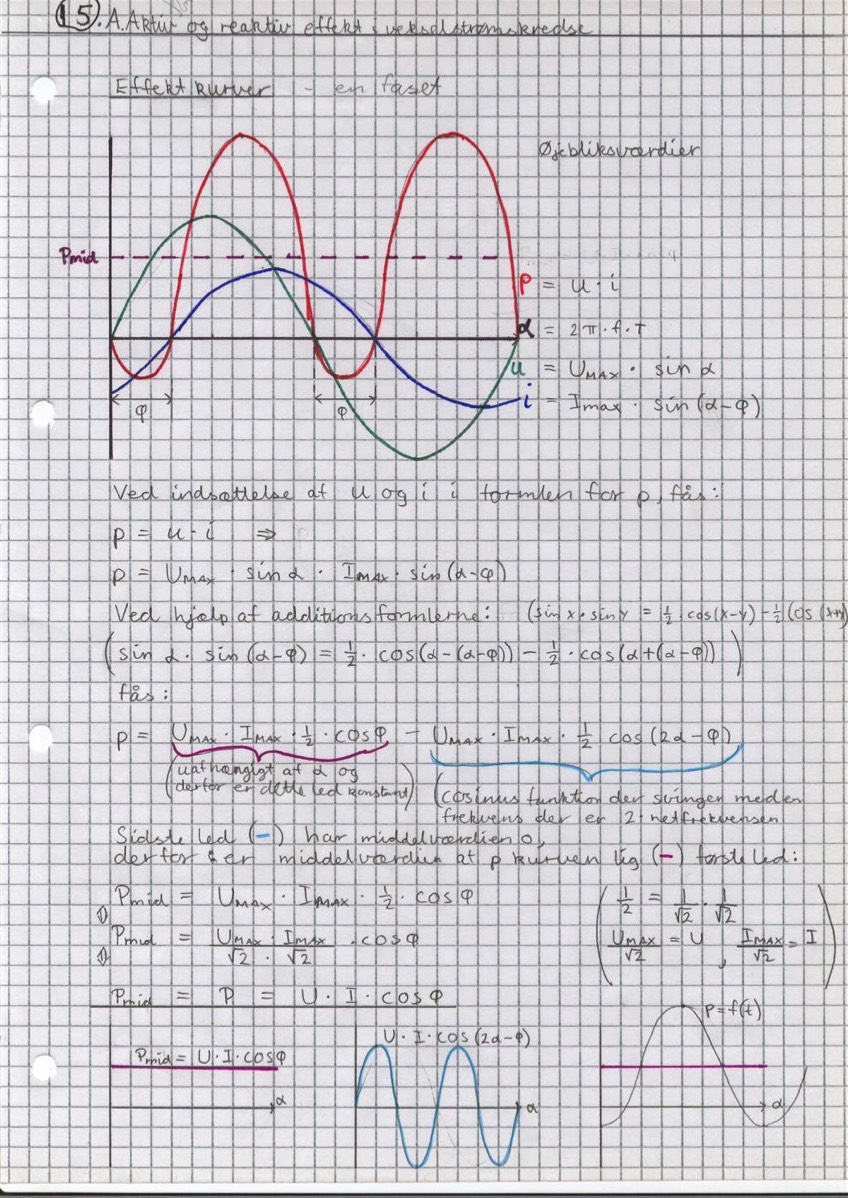 15. A. Aktiv og reaktiv effekt i vekselstrømskredse
Effektkurver - en faset
Øjebliksværdier
Pmid
p = u · i
α = 2π · f · T
u = UMAX · sin α
i = Imax · sin (α-φ)
φ φ
Ved indsættelse af u og i i formlen for p, fås:
p = u · i ⇒
p = UMAX · sin α · IMAX · sin (α-φ)
Ved hjælp af additionsformlerne: (sin x · sin y = ½ · cos(x-y) - ½ cos (x+y)
(sin α · sin (α-φ) = ½ · cos(α-(α-φ)) - ½ · cos(α+(α-φ)))
fås:
p = UMAX · IMAX · ½ · cos φ - UMAX · IMAX · ½ cos (2α-φ)
(uafhængigt af α og
derfor er dette led konstant)
(cosinus funktion der svinger med en
frekvens der er 2·netfrekvensen
Sidste led (-) har middelværdien 0,
derfor er middelværdien af p kurven lig (-) første led:
Pmid = UMAX · IMAX · ½ · cos φ
⇕
Pmid = UMAX/√2 · IMAX/√2 · cos φ
⇕
(½ = 1/√2 · 1/√2
UMAX/√2 = U , IMAX/√2 = I)
Pmid = P = U · I · cos φ
Pmid = U · I · cos φ
α
U · I · cos (2α-φ)
α
p = f(t)
α